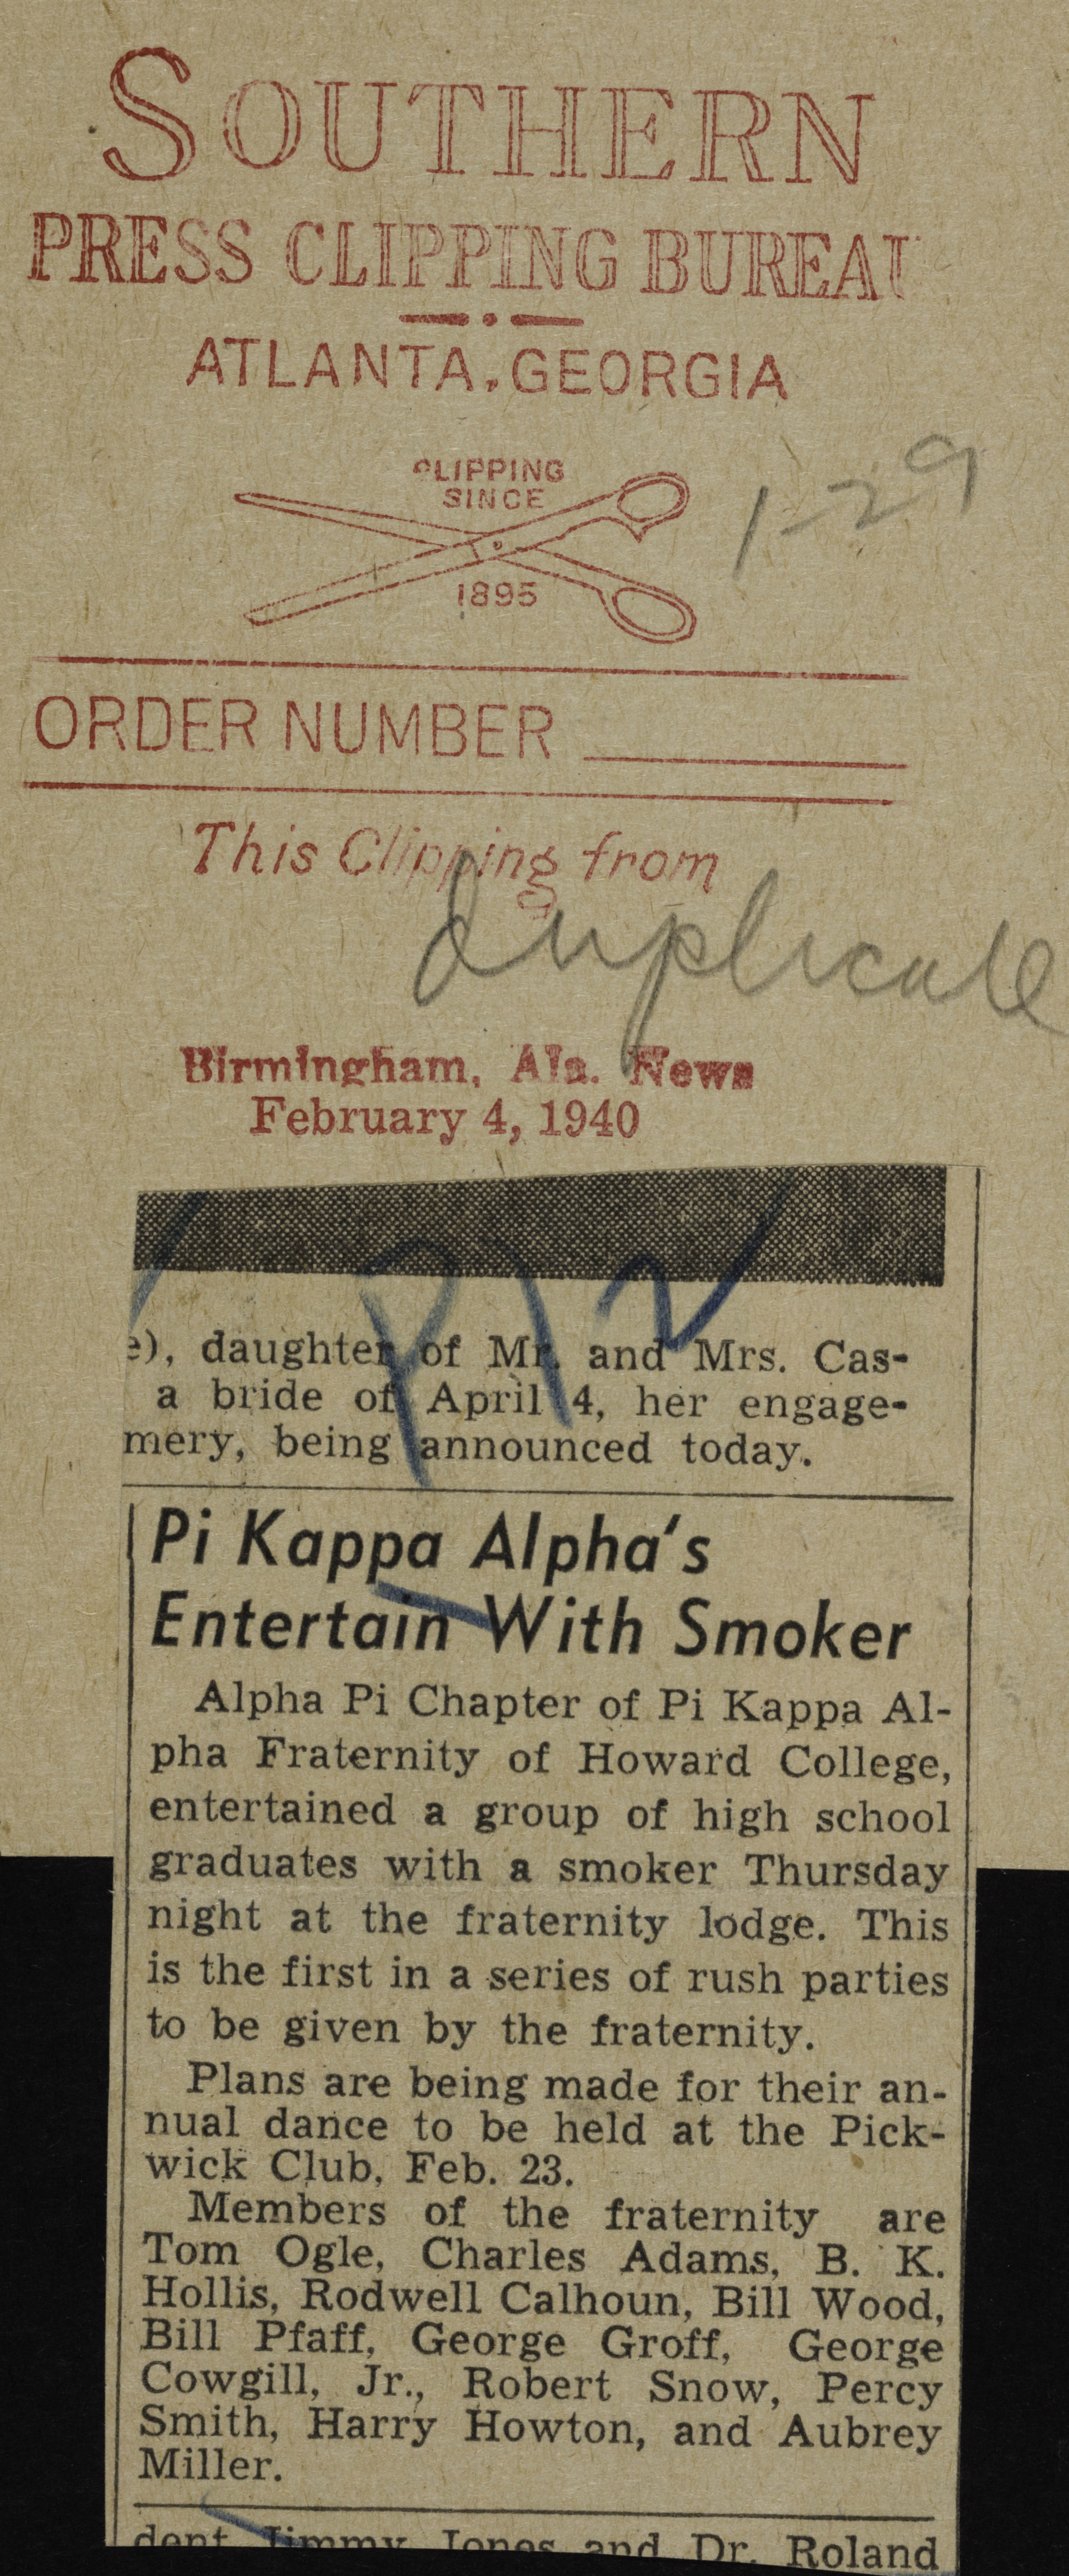 SOUTHERN
PRESS CLIPPING BUREAU
ATLANTA, GEORGIA
CLIPPING
SINCE
1895
1-29
ORDER NUMBER
This Clipping from
duplicate
Birmingham, Ala. News
February 4, 1940
e), daughter of Mr. and Mrs. Cas-
a bride of April 4, her engage-
mery, being announced today.
Pi Kappa Alpha's
Entertain With Smoker
Alpha Pi Chapter of Pi Kappa Al-
pha Fraternity of Howard College,
entertained a group of high school
graduates with a smoker Thursday
night at the fraternity lodge. This
is the first in a series of rush parties
to be given by the fraternity.
Plans are being made for their an-
nual dance to be held at the Pick-
wick Club, Feb. 23.
Members of the fraternity are
Tom Ogle, Charles Adams, B. K.
Hollis, Rodwell Calhoun, Bill Wood,
Bill Pfaff, George Groff, George
Cowgill, Jr., Robert Snow, Percy
Smith, Harry Howton, and Aubrey
Miller.
dent Jimmy Jones and Dr. Roland